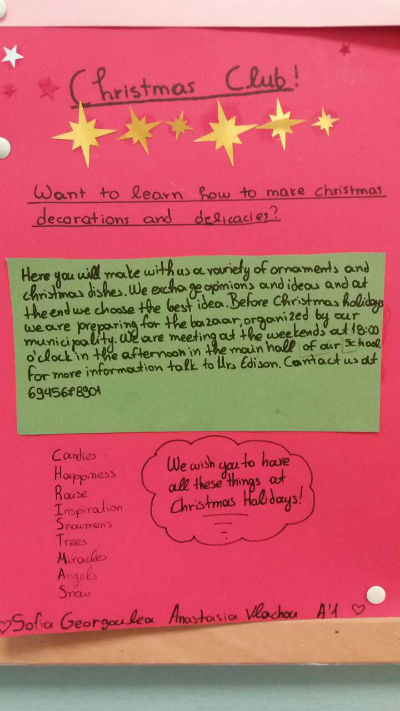 Christmas Club!
Want to learn how to make christmas
decorations and delicacies?
Here you will make with us a variety of ornaments and
christmas dishes. We exchage opinions and ideas and at
the end we choose the best idea. Before Christmas holidays
we are preparing for the bazaar, organized by our
municipality. We are meeting at the weekends at 18:00
o'clock in the afternoon in the main hall of our school
for more information talk to Mrs Edison. Contact us at
6945678901
Candies
Happiness
Raise
Inspiration
Snowmens
Trees
Miracles
Angels
Snow
We wish you to have
all these things at
Christmas Holidays!
Sofia Georgoulea Anastasia Vlachou A'1